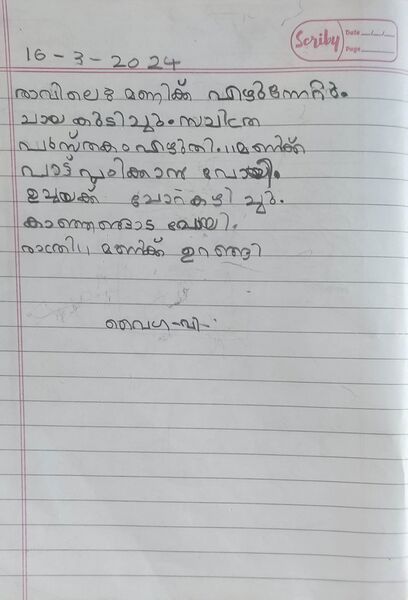 Scriby
Date
Page
16-3-2024
രാവിലെ 8 മണിക്ക് എഴുന്നേറ്റു.
ചായ കുടിച്ചു. സചിത്ര
പുസ്തകം എഴുതി. 11 മണിക്ക്
പാട്ട് പഠിക്കാൻ പോയി.
ഉച്ചയക്ക് ചോറ് കഴിച്ചു.
പോയി.
രാത്രി 11 മണിക്ക് ഉറങ്ങി
വൈഗ-വി-